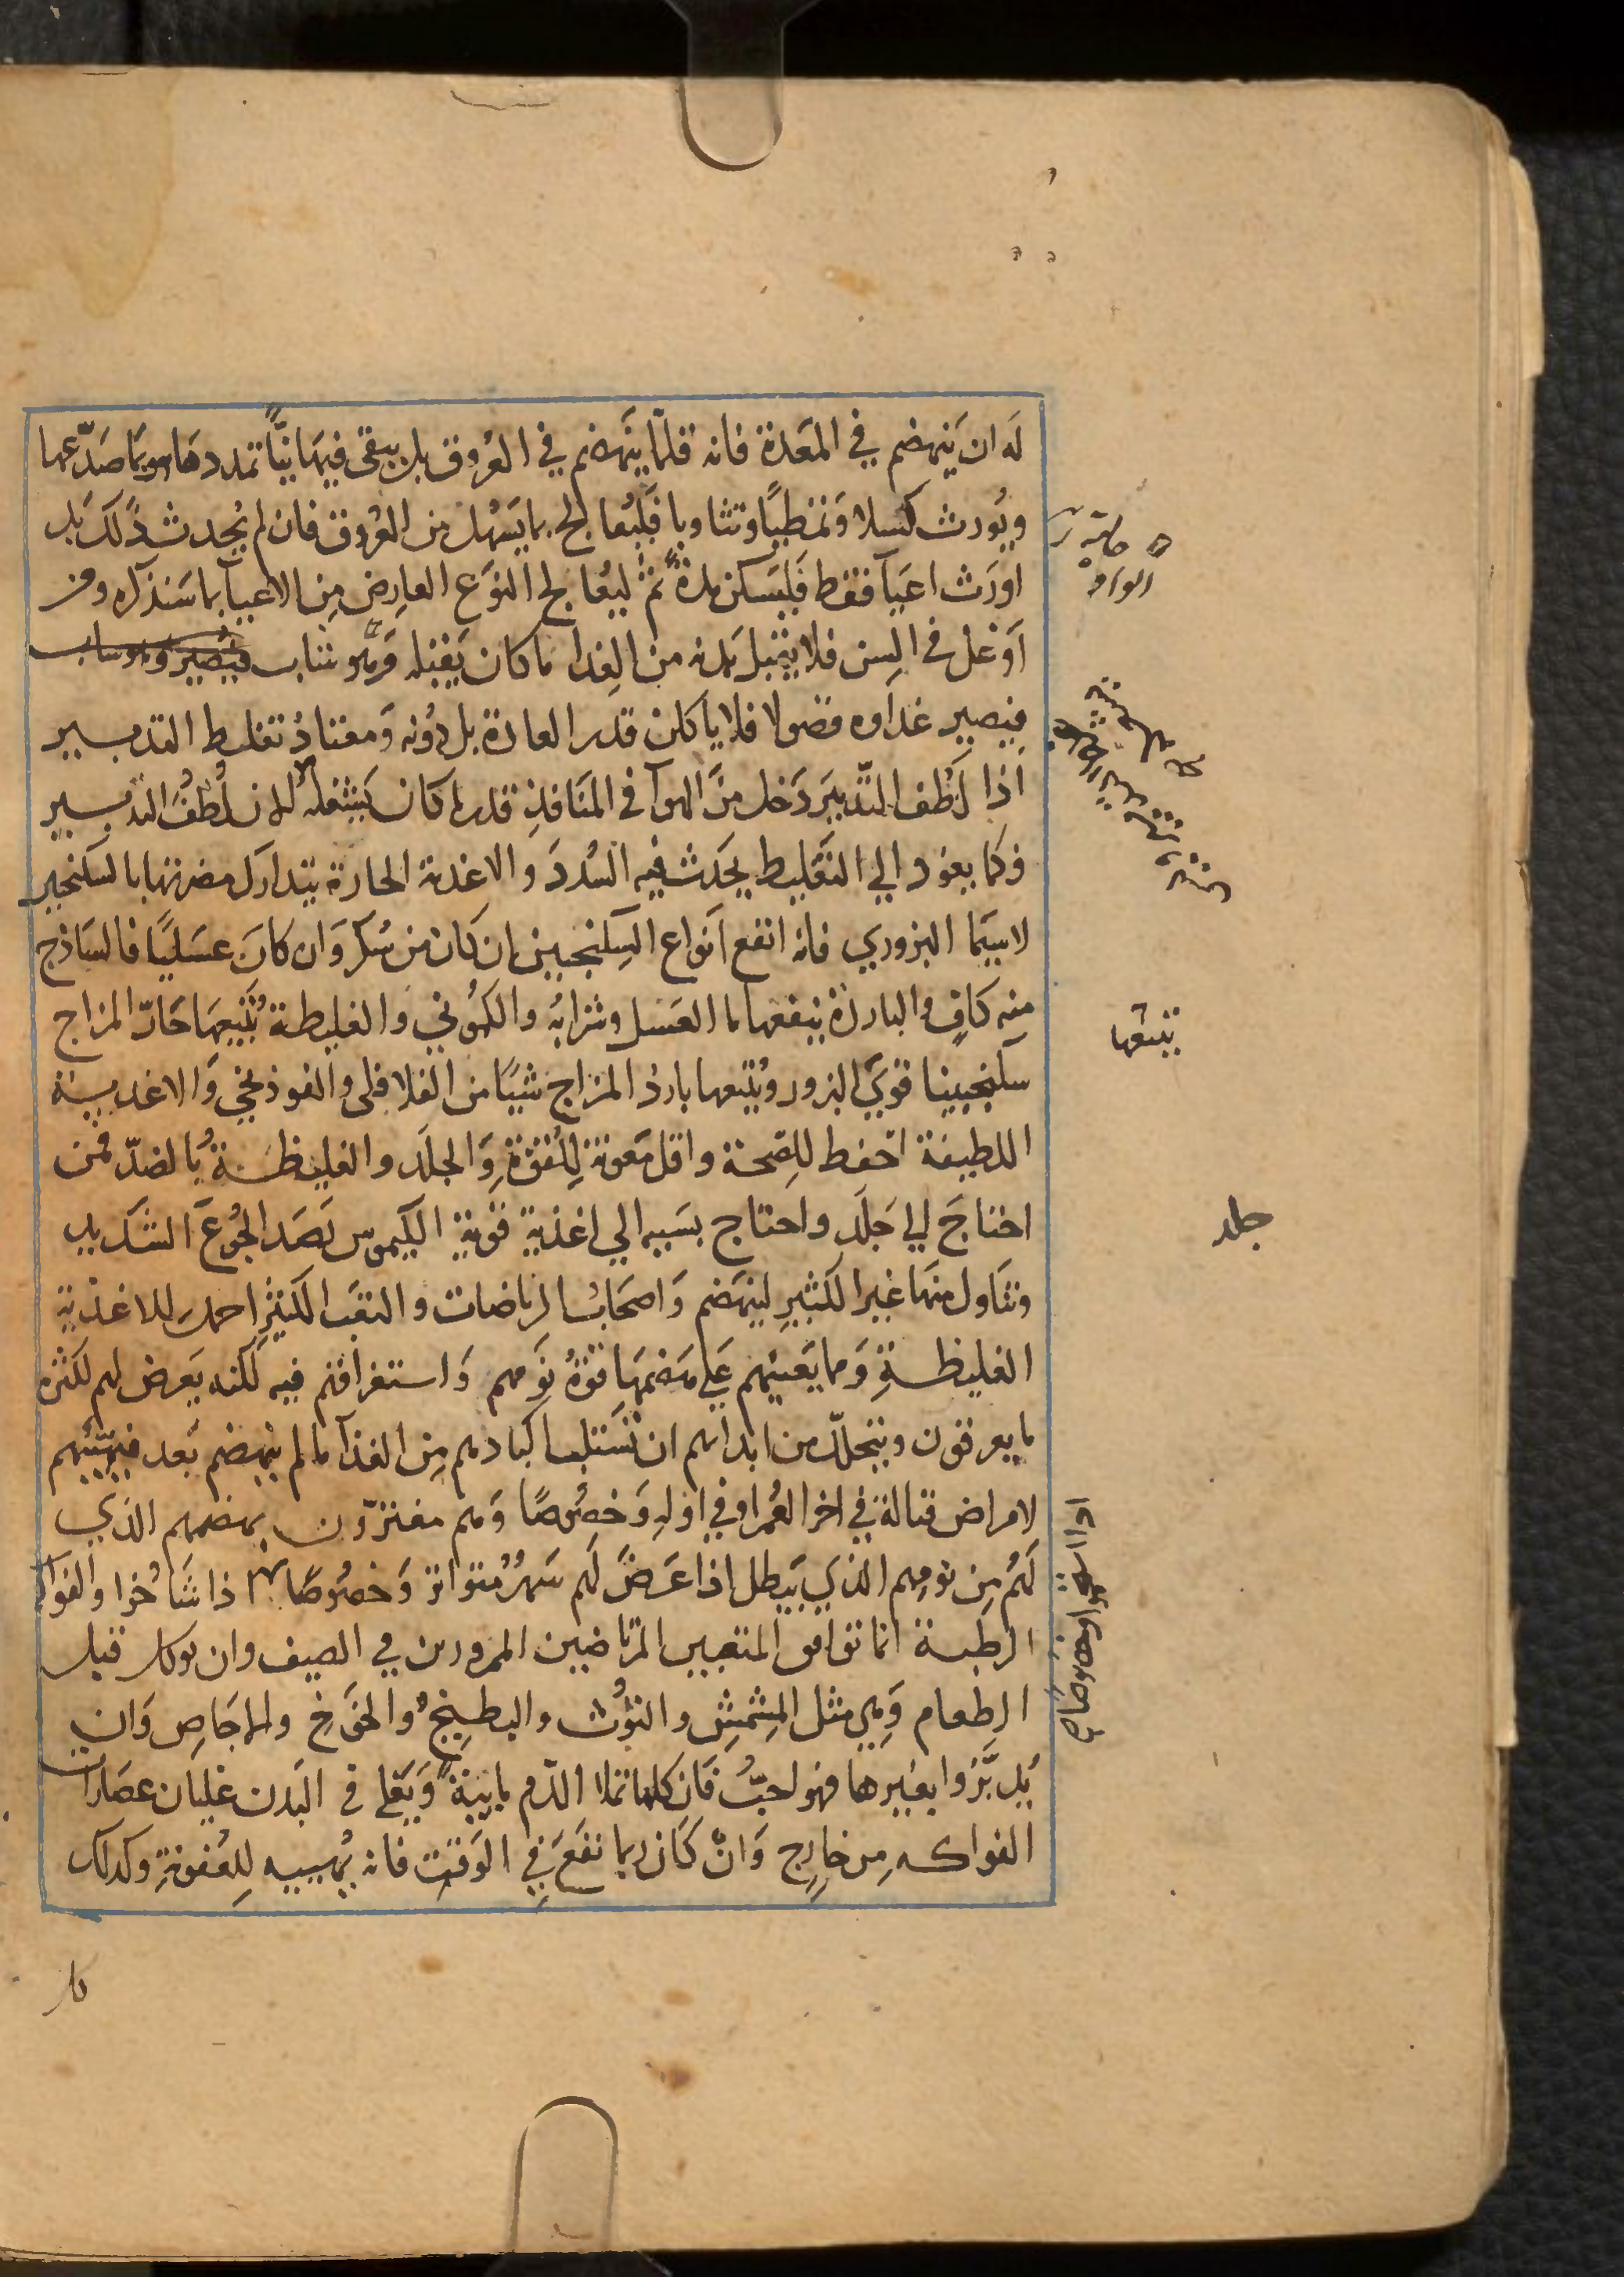 لَه ان يَنهضم في المَعدة فانه قلمّا ينَهضم في العُروق بل يبقى فيهَا نيًّا تمددهَا وربمَا صَدّعها
ويُورث كسلا وَتمَطيًا وتثاوبا فَليُعالج بما يَسُهل من العُروق فان لم يُحدث ذَلكَ بل
اورَث اعيَآ فقط فَليَسكن مدةً ثمّ ليُعالج النوَع العارِض مِن الاعيآ بما سَنذكره ومن
اَوغل في السِن فلا يقبل بَدنه من الغِدا ما كان يَقبله وَهُو شاب
فيصير غداوه فضولا فلا ياكلن قدر العادة بل دُونه وَمعتادُ تغليط التدبير
اذا لَطّف التّدبيَر دَخل منَ الهوآ في المنَافذِ قدر ما كان يَشغله لان لُطفُ التدبير
فكما يعوُد الي التغَليط يحَدث فيه السُدد والاغدية الحارة يتدارك مضرتها بالسكنجبين
لاسيَما البزوري فانه انفع اَنواع السِكنجبين ان كَان من سُكر وَان كانَ عسَليًا فالسَاذج
منه كافٍ والباردة ينفعها ما العَسل وشرابُه والكموُني والغليطة يُتبعِهَا حَارّ المزاج
سكنجبينا قويَ البزور ويُتبعها باردُ المزاج شيًا من الفلافلى والفوذنجي وَالاغديــة
اللطيفة احَفط للِصّحة واقل مَعونة لِلقُوّةِ وَالجلَد والغليظــةُ بالضدّ فمن
احتاجَ الي جَلَد واحتاج بسَببه الي اغذيةٍ قويّةِ الكيموس رَصَد الجُوعَ الشَديد
وتنَاول منهَا غير الكَثيرِ لينهَضم وَاصحَابُ الرياضات والتعَب الكثيرِ احمل للاغذية
الغليظــةِ وَمما يُعينُهم عَلي هَضمهَا قوّةُ نَومهم وَاستغراقهم فيه لَكنه يَعرض لهم لكثره
ما يعرقون ويتحلّل من ابدانهم ان تستَلب اكبادهم مِن الغذآ ما لم ينهضم بَعد فيُهيّيهم
لامراض قتالة في اخر العُمر او في اولِه وَخصُوصًا وَهم مغترّون بهضمهم الذي
لَهُم مِن نومِهم الذي يَبطل اذا عَرَضَ لَهم سَهرٌ مُتواتر وَخصُوصًا اذا شَاخُوا والفواكه
الرطبــة انما توافق المتعبين المرتاضين الممرورين في الصيف وان توكل قبل
الطعام وَهي مثل المِشمِشِ والتوُث والبطيخِ والخَوَخِ والاجَاصِ وَان
يُدبَّرُوا بغيرها فهو احبّ فَان كلما تملا الدّم مايية وَيَغلي في البَدن غليان عصَارات
الفواكه مِن خارِج وَانْ كَان ربما نفَعَ في الوَقت فانه يُهييه لِلعُفونةِ وكدلك
يتبعها
جلد